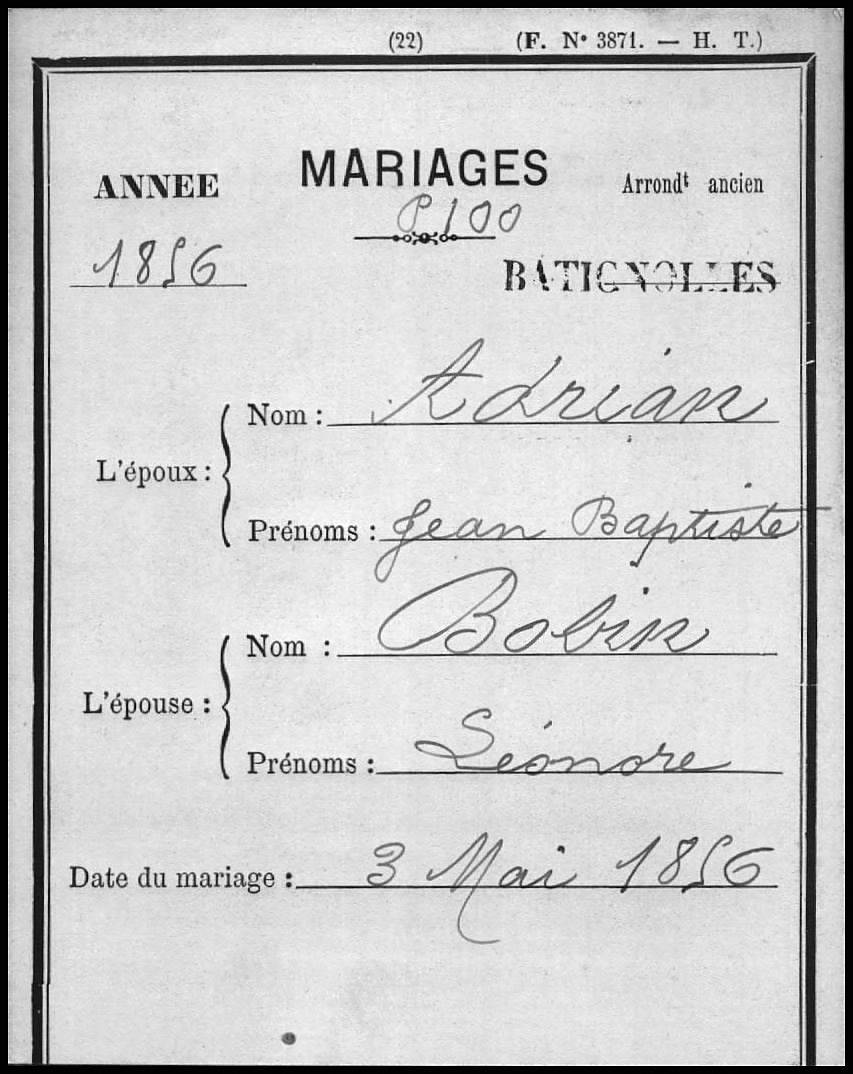 (22) (F. N° 3871. — H. T.)
ANNEE MARIAGES Arrondt ancien
P 100
1856 BATIGNOLLES
L'époux :
Nom : Adrian
Prénoms : Jean Baptiste
L'épouse :
Nom : Bobin
Prénoms : Léonore
Date du mariage : 3 Mai 1856